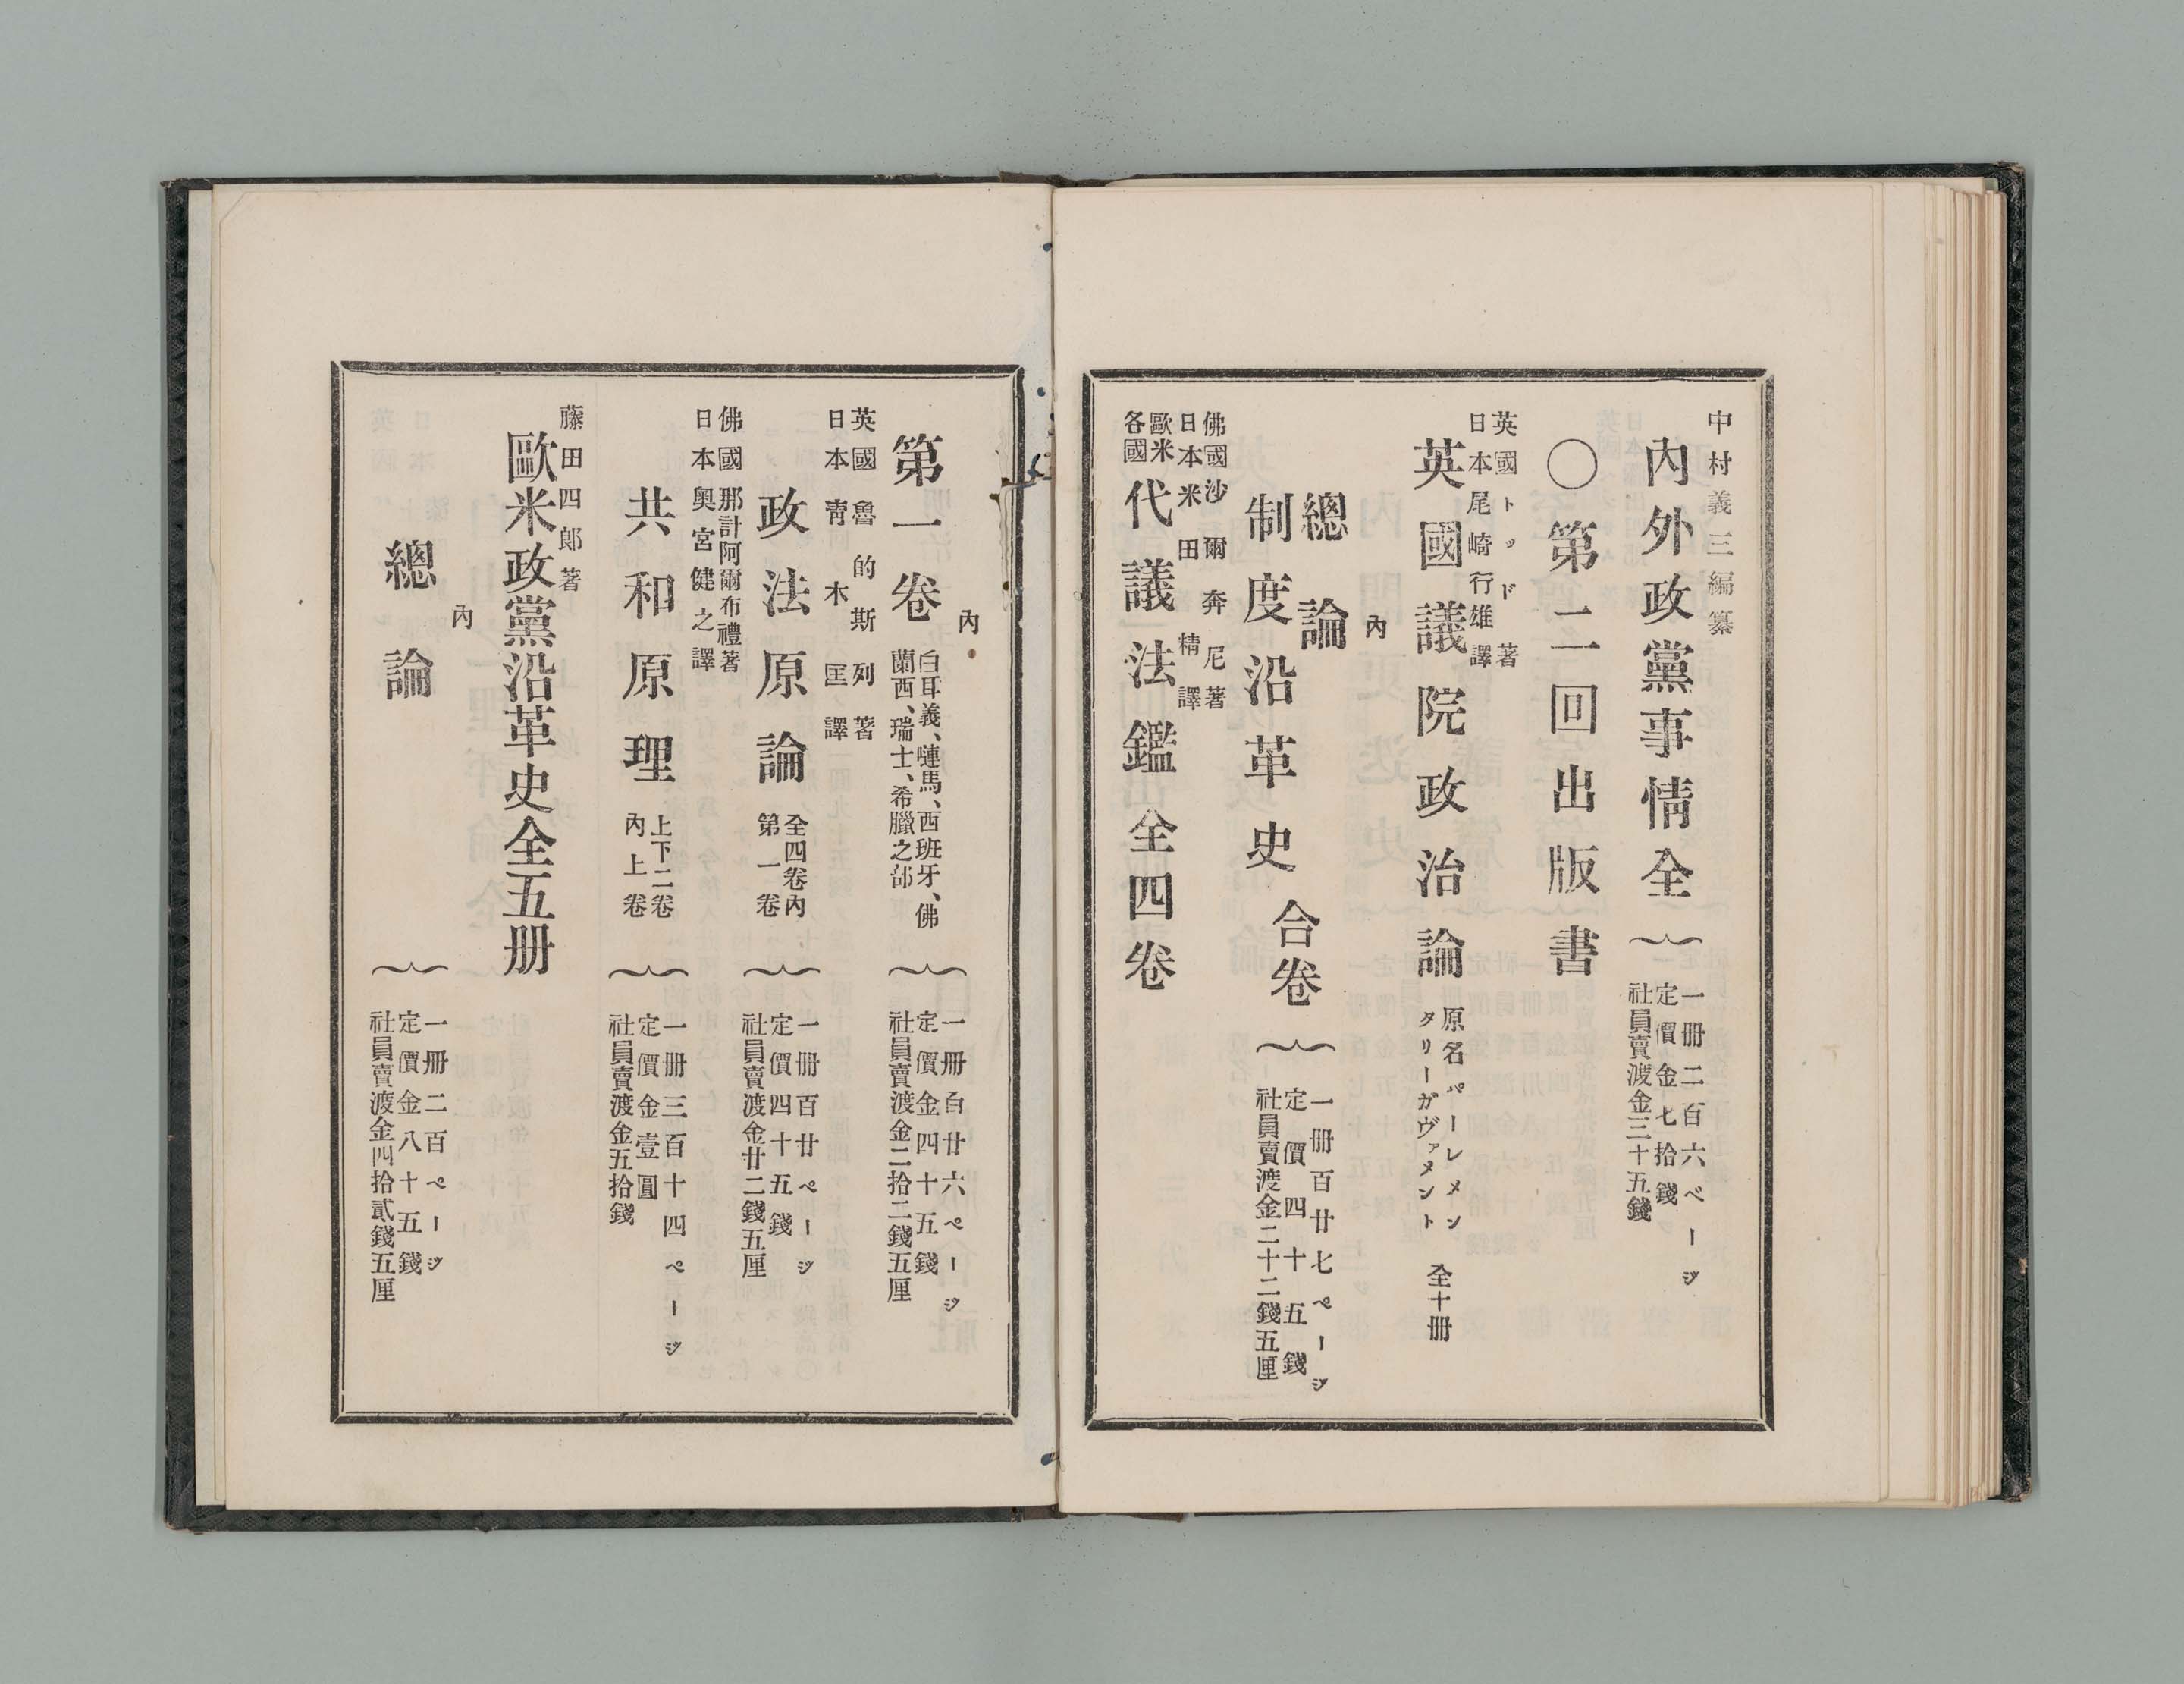 中村義三編纂
內外政黨事情全
一冊二百六ページ
定價金七拾錢
社員賣渡金三十五錢
○第二回出版書
英國トッド著
日本尾崎行雄譯
英國議院政治論
原名パーレメン
タリーガヴァメント
全十冊
內
總論
制度沿革史
合卷
一冊百廿七ページ
定價四十五錢
社員賣渡金二十二錢五厘
佛國沙爾奔尼著
日本米田精譯
歐米
各國
代議法鑑全四卷
內
第一卷
白耳義、嗹馬、西班牙、佛
蘭西、瑞士、希臘之部
一冊百廿六ページ
定價金四十五錢
社員賣渡金二拾二錢五厘
英國魯的斯列著
日本青木匡譯
政法原論
全四卷內
第一卷
一冊百廿ページ
定價四十五錢
社員賣渡金廿二錢五厘
佛國那計阿爾布禮著
日本奧宮健之譯
共和原理
上下二卷
內上卷
一冊三百十四ページ
定價金壹圓
社員賣渡金五拾錢
藤田四郎著
歐米政黨沿革史全五冊
內
總論
一冊二百ページ
定價金八十五錢
社員賣渡金四拾貳錢五厘